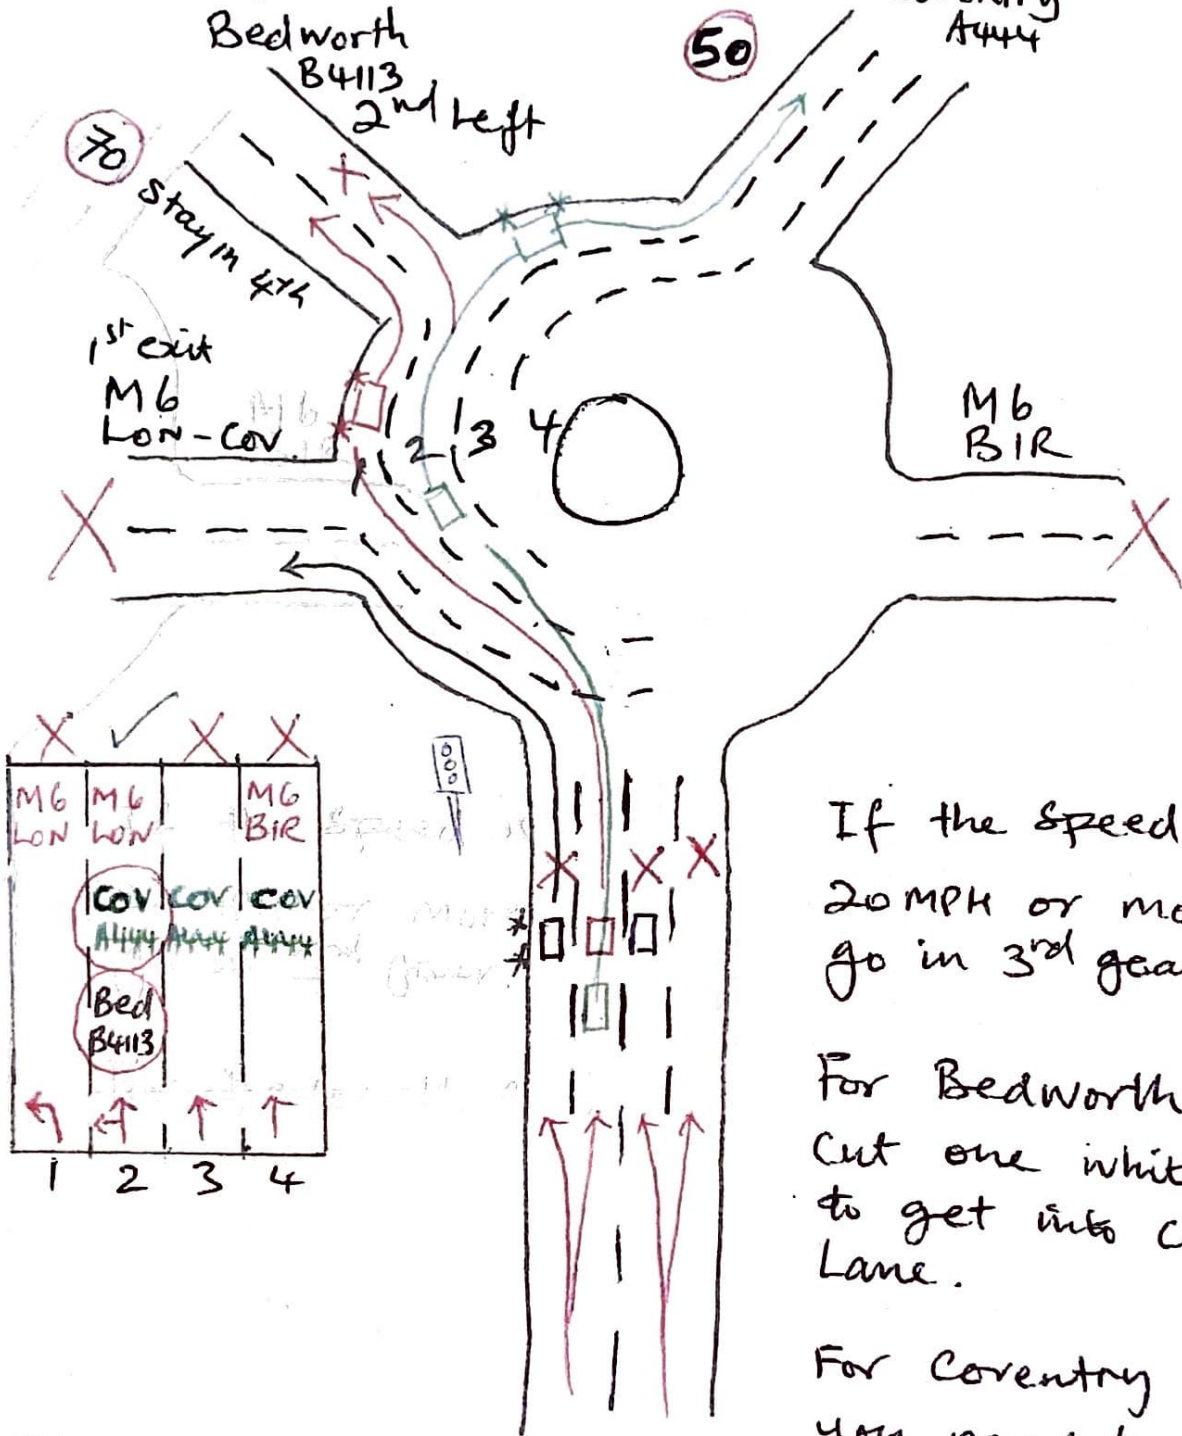 Bedworth
B4113
2nd Left
50
A444
70
Stay in 4th
1st exit
M6
LON-COV
2 3 4
M6
BIR
M6 LON
M6 LON
M6 BIR
COV A444
COV A444
COV A444
Bed B4113
1 2 3 4
If the Speed
20 MPH or
go in 3rd
For Bedworth
Cut one
to get into
Lane.
For Coventry